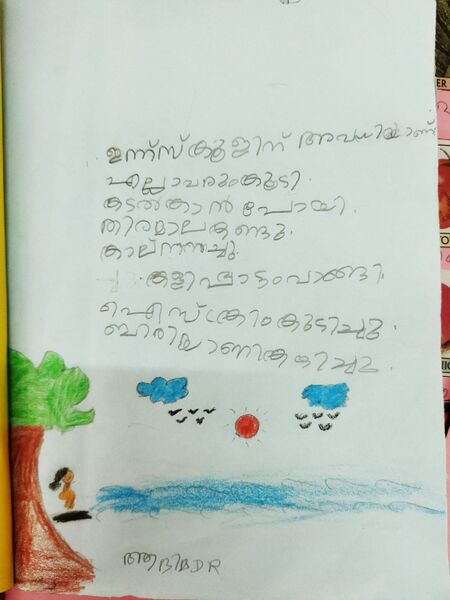 ഇന്ന് സ്കൂളിന് അവധിയാണ്
എല്ലാവരുംകൂടി.
കടൽകാൻ പോയി.
തിരമാലകണ്ടു.
കാല്നനച്ചു.
കളിപ്പാട്ടംവാങ്ങി.
ഐസ്ക്രീംകുടിച്ചു.
ബിരിയാണികഴിച്ചു.